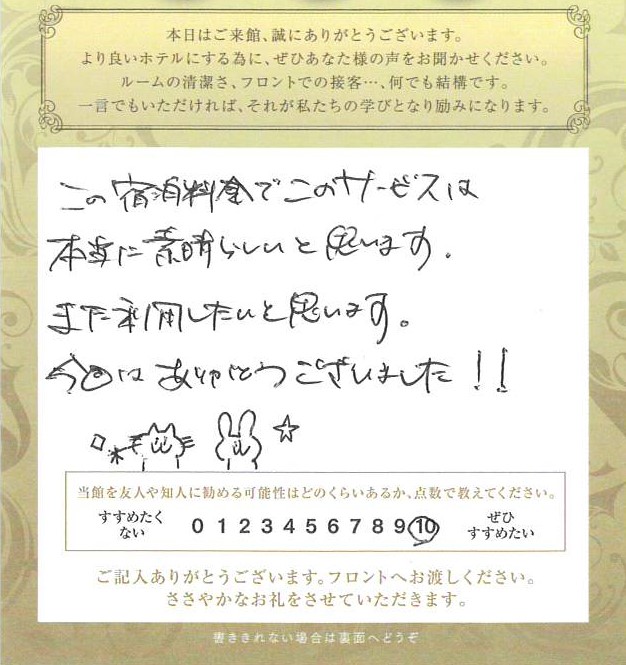 本日はご来館、誠にありがとうございます。
より良いホテルにする為に、ぜひあなた様の声をお聞かせください。
ルームの清潔さ、フロントでの接客…、何でも結構です。
一言でもいただければ、それが私たちの学びとなり励みになります。
この宿泊料金でこのサービスは
本当に素晴らしいと思います。
また利用したいと思います。
今回はありがとうございました!!
当館を友人や知人に勧める可能性はどのくらいあるか、点数で教えてください。
すすめたくない 0 1 2 3 4 5 6 7 8 9 10 ぜひすすめたい
ご記入ありがとうございます。フロントへお渡しください。
ささやかなお礼をさせていただきます。
書ききれない場合は裏面へどうぞ